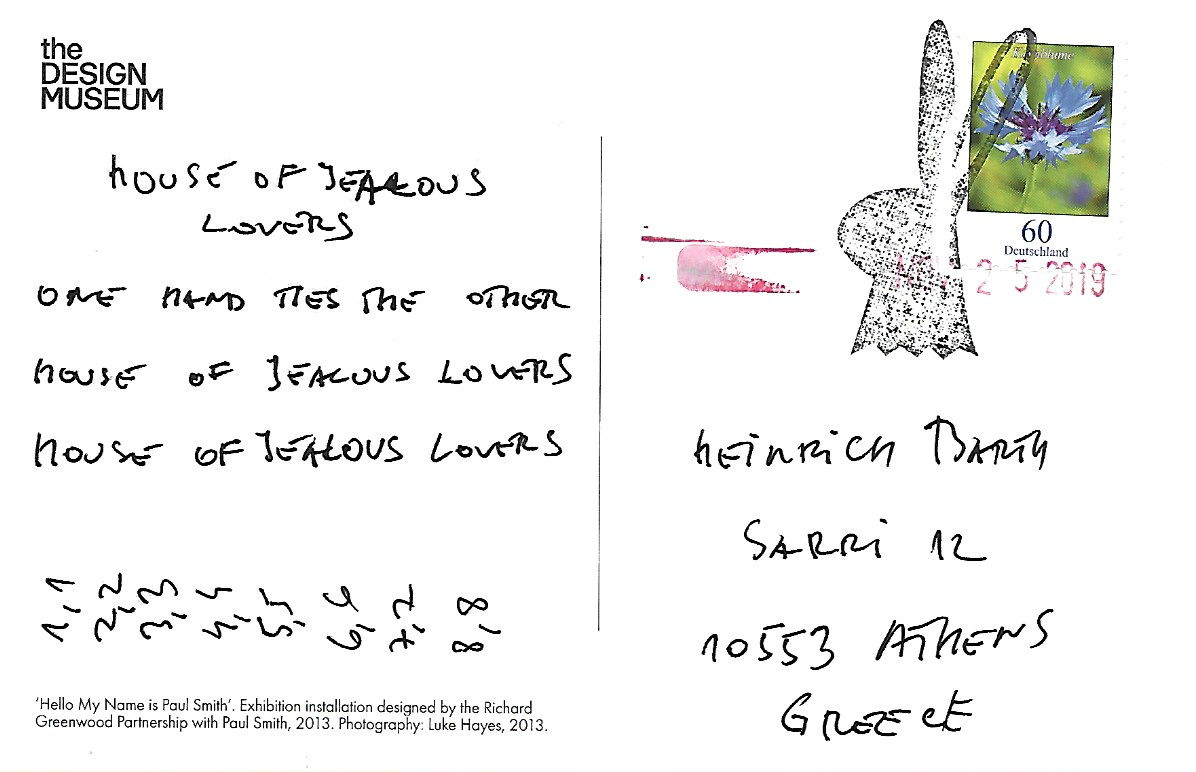 the
DESIGN
MUSEUM
HOUSE OF JEALOUS
LOVERS
ONE HAND TIES THE OTHER
HOUSE OF JEALOUS LOVERS
HOUSE OF JEALOUS LOVERS
1 2 3 4 5 6 7 8
1 2 3 4 5 6 7 8
'Hello My Name is Paul Smith'. Exhibition installation designed by the Richard
Greenwood Partnership with Paul Smith, 2013. Photography: Luke Hayes, 2013.
Kornblume
60
Deutschland
NOV 25 2019
HEINRICH BARTH
SARRI 12
10553 ATHENS
GREECE